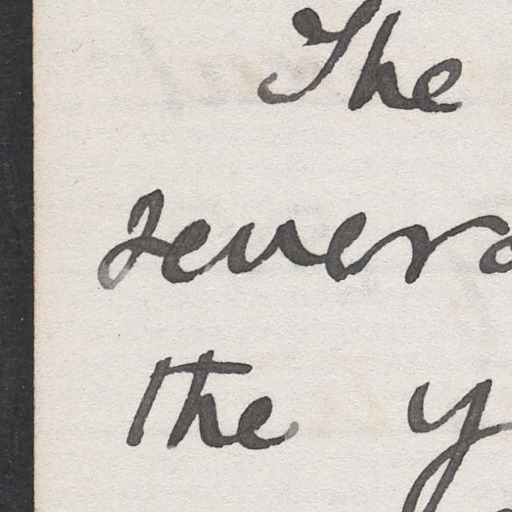 The
severa
the y